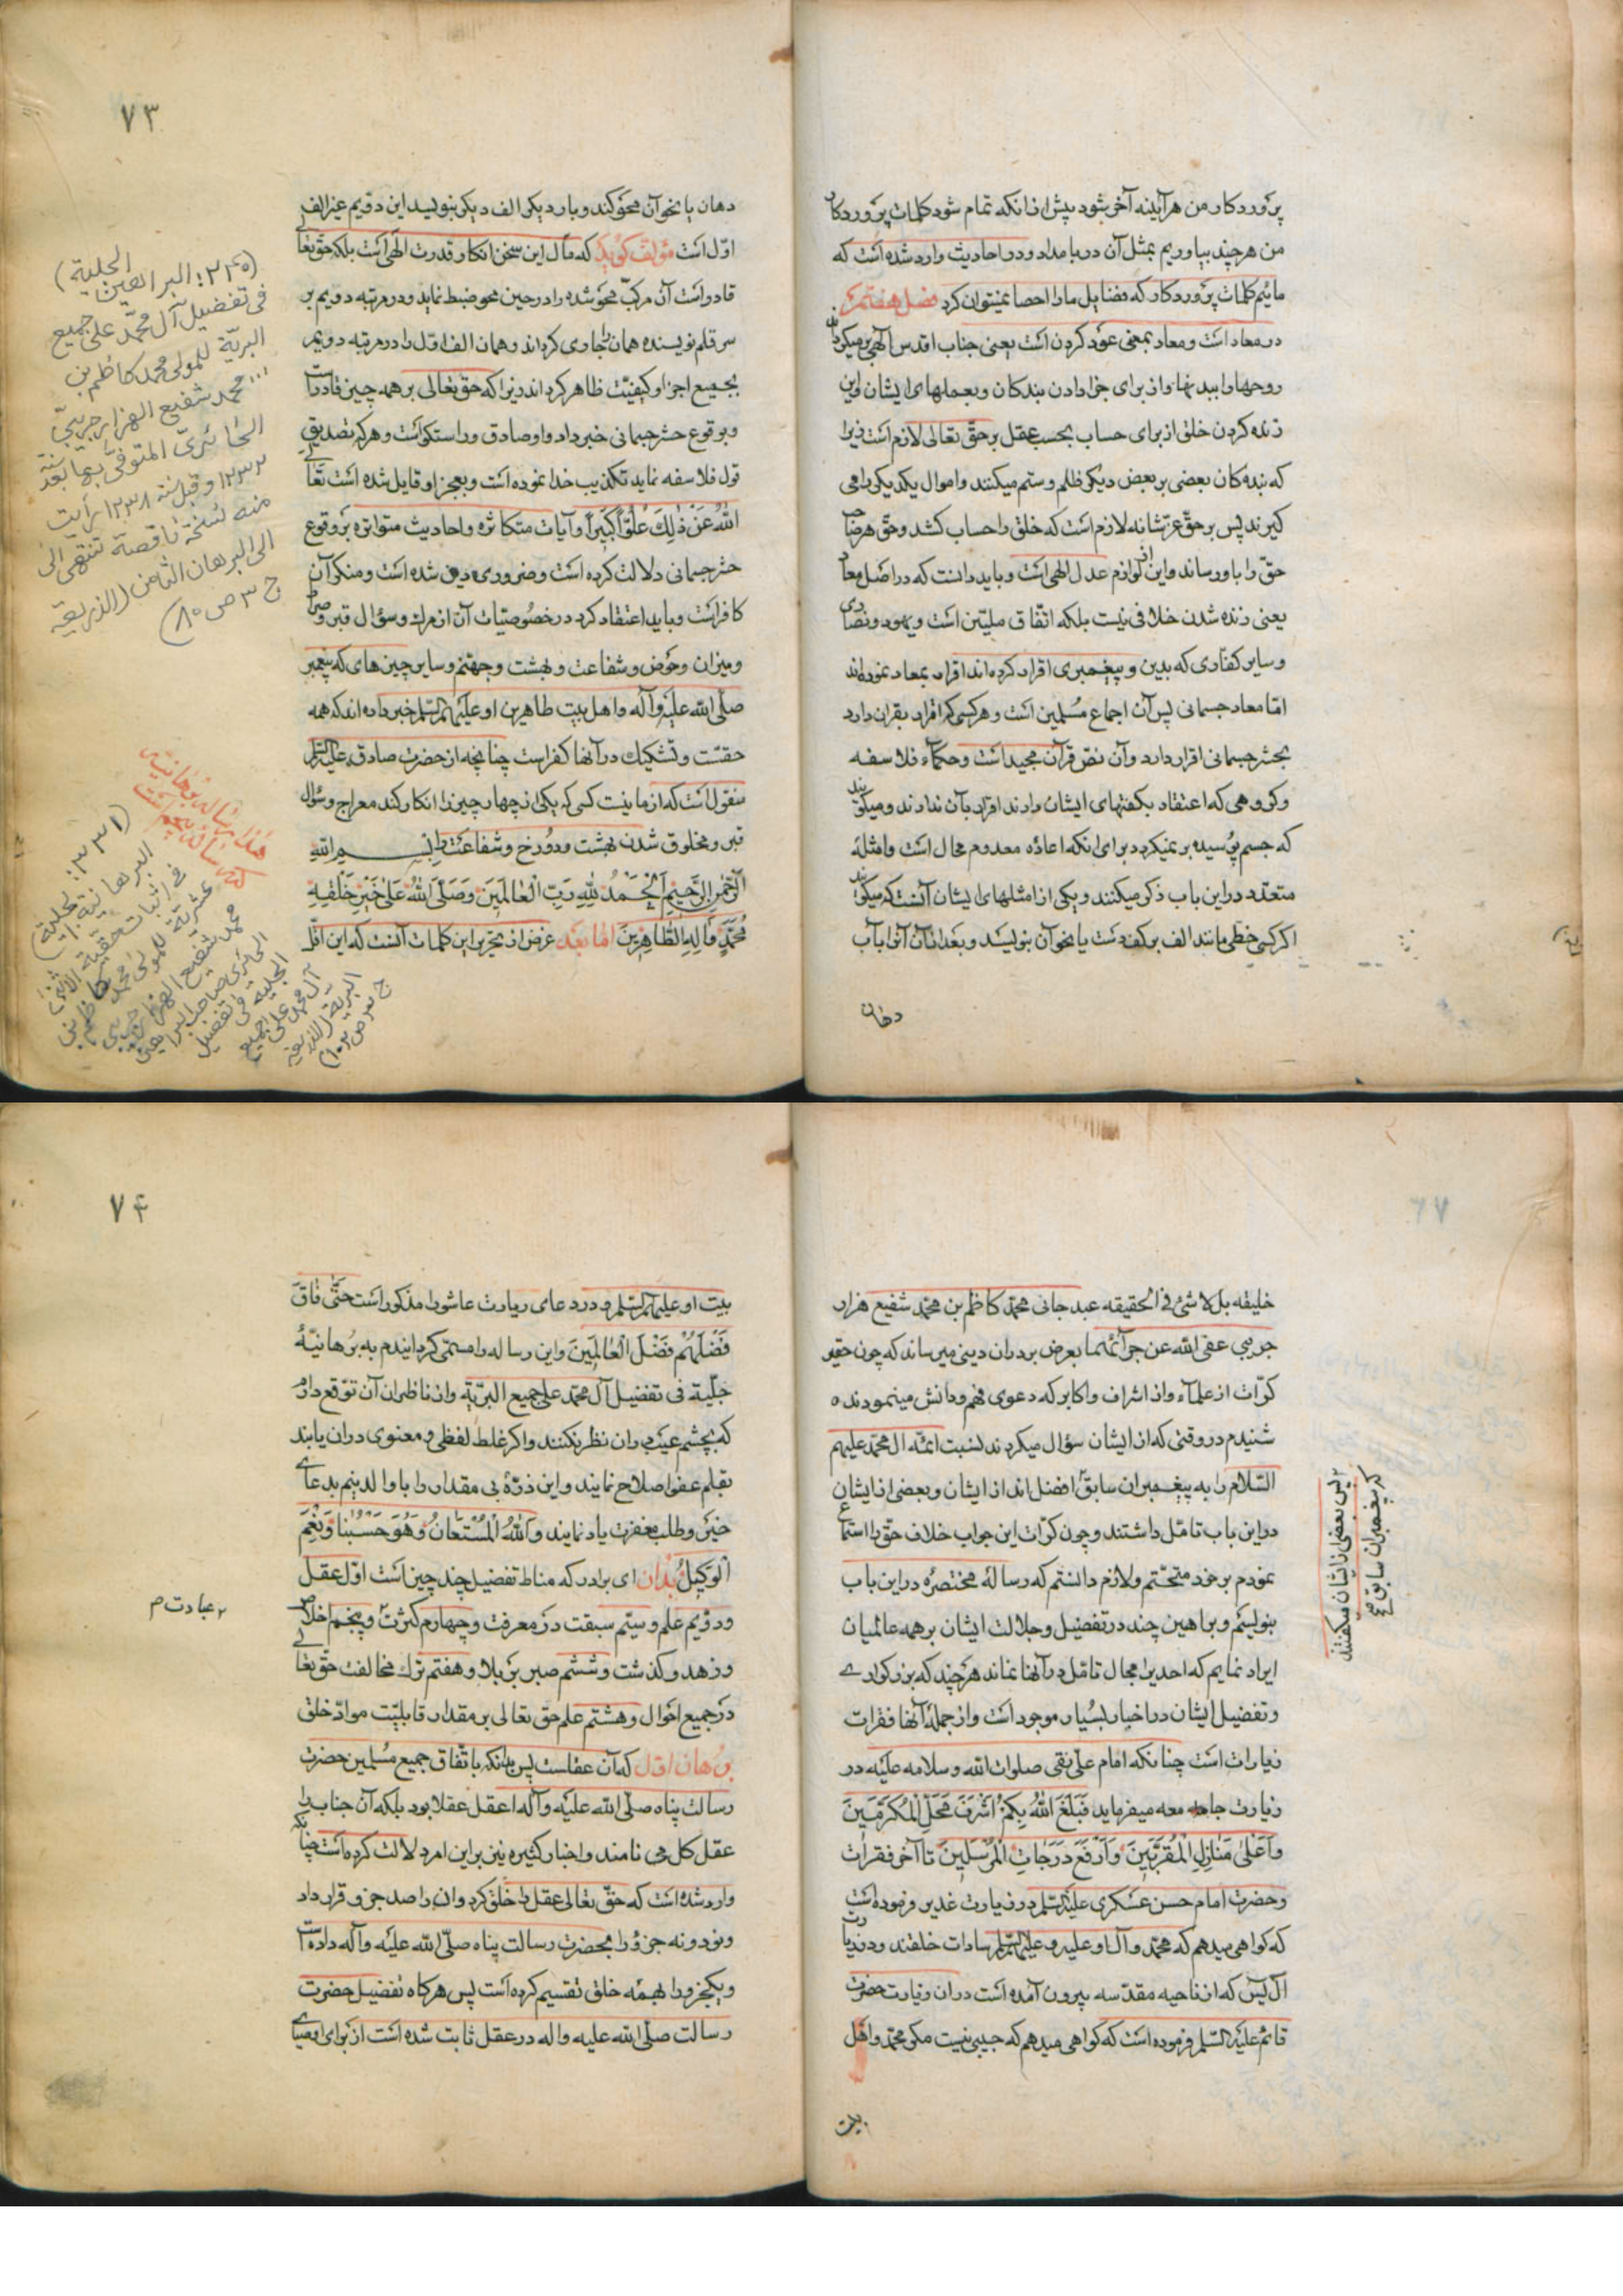 پروردکار من هرآینه آخر شود پیش از انکه تمام شود کلمات پروردکار
من هرچند بیاوریم بمثل آن دریا مداد و در احادیث وارد شده است که
مائیم کلمات پروردکار که فضایل ما را احصا نمیتوان کرد فصل هفتم
در معاد است و معاد بمعنی عود کردن است یعنی جناب اقدس الهی برمیکرداند
روحها را ببدنها و از برای جزا دادن بندکان و بعملهای ایشان و این
زنده کردن خلق از برای حساب بحسب عقل بر حق تعالی لازم است زیرا
که بنده کان بعضی بر بعض دیکر ظلم و ستم میکنند و اموال یکدیکر را می
کیرند پس بر حق عز شانه لازم است که خلق را حساب کشد و حق هر صاحب
حق را باو رساند و این از لوازم عدل الهی است و باید دانست که در اصل معاد
یعنی زنده شدن خلافی نیست بلکه اتّفاق ملیّین است و یهود و نصاری
و سایر کفّاری که بدین و پیغمبری اقرار کرده اند اقرار بمعاد نموده اند
امّا معاد جسمانی پس آن اجماع مسلمین است و هرکسی که اقرار بقران دارد
بحشر جسمانی اقرار دارد و آن نصّ قرآن مجید است و حکماء فلاسفه
و کروهی که اعتقاد بکفتهای ایشان دارند اقرار بآن ندارند و میکویند
که جسم پوسیده بر نمیکردد برای انکه اعاده معدوم محال است و امثله
متعدّد در این باب ذکر میکنند و یکی از امثلهای ایشان آنست که میکویند
اکر کسی خطی مانند الف بر کف دست یا نحو آن بنویسد و بعد از آن آنرا بآب
دهان
۷۳
دهان یا نحو آن محو کند و بار دیکر الف دیکر بنویسد این دویم غیر الف
اوّل است مؤلف کوید که مآل این سخن انکار قدرت الهی است بلکه حق تعالی
قادر است آن مرکّب محو شده را در حین محو ضبط نماید و در مرتبه دویم بر
سر قلم نویسنده همان را جاری کرداند و همان الف اوّل را در مرتبه دویم
بجمیع اجزا و کیفیّت ظاهر کرداند زیرا که حق تعالی بر همه چیز قادر است
و بوقوع حشر جسمانی خبر داد و او صادق و راستکو است و هر که تصدیق
قول فلاسفه نماید تکذیب خدا نموده است و بعجز او قایل شده است تعالی
اللّه عن ذلك علوّا کبیرا و آیات متکاثره و احادیث متواتره بر وقوع
حشر جسمانی دلالت کرده است و ضروری دین شده است و منکر آن
کافر است و باید اعتقاد کرد در خصوصیّات آن از مرك و سؤال قبر و صراط
و میزان و حوض و شفاعت و بهشت و جهنّم و سایر چیزهای که پیغمبر
صلّی اللّه علیه وآله و اهل بیت طاهرین او علیهم السّلم خبر داده اند که همه
حقست و تشکیك در آنها کفر است چنانچه از حضرت صادق علیه السّلم
منقول است که از ما نیست کسی که یکی از چهار چیز را انکار کند معراج و سؤال
قبر و مخلوق شدن بهشت و دوزخ و شفاعت را بسم اللّه
الرّحمن الرّحیم الحمد للّه ربّ العالمین و صلّی اللّه علی خیر خلقه
محمّد و آله الطّاهرین اما بعد غرض از تحریر این کلمات آنست که این اقلّ
(۲۳۴۵: البراهین الجلیة)
فی تفضیل آل محمّد علی جمیع
البریّة للمولی محمد کاظم بن
محمد شفیع الهزارجریبیّ
الحائریّ المتوفّی بها بعد سنة
۱۲۳۲ و قبل سنة ۱۲۳۸ رأیت
منه نسخة ناقصة تنتهی الی
الی البرهان الثامن (الذریعة
ج ۳ ص ۸۰)
هذا رساله برهانیّه
(۳۳۱: البرهانیة الجلیة)
فی اثبات حقیّة الاثنی
عشریّة للمولی محمد کاظم بن
محمد شفیع الهزارجریبی
الحائری صاحب البراهین
الجلیة فی تفضیل
آل محمد علی جمیع
البریة (الذریعة
ج ۳ ص ۱۰۲)
خلیفه بل لا شئ فی الحقیقه عبد جانی محمّد کاظم بن محمّد شفیع هزار
جریبی عفی اللّه عن جرآئمهما بعرض بردران دینی میرساند که چون حقیر
کرّات از علمآء و از اشراف و اکابر که دعوی فهم و دانش مینمودند
شنیدم در وقتی که از ایشان سؤال میکردند نسبت ائمّه آل محمّد علیهم
السّلام را به پیغمبران سابق افضل اند از ایشان و بعضی از ایشان
در این باب تامّل داشتند و چون کرّات این جواب خلاف حق را استماع
نمودم بر خود متحتّم و لازم دانستم که رسالهٔ مختصره در این باب
بنویسم و براهین چند در تفضیل و جلالت ایشان بر همه عالمیان
ایراد نمایم که احدیرا مجال تامّل در آنها نماند هر چند که بزرکواری
و تفضیل ایشان در اخبار بسیار موجود است و از جملهٔ آنها فقرات
زیارات است چنانکه امام علی نقی صلوات اللّه و سلامه علیه در
زیارت جامعه میفرماید فبلغ اللّه بکم اشرف محلّ المکرّمین
و اعلی منازل المقرّبین و ارفع درجات المرسلین تا آخر فقرات
و حضرت امام حسن عسکری علیه السّلم در زیارت غدیر فرموده است
که کواهی میدهم که محمّد و آل او علیه و علیهم السّلم سادات خلقند و در زیارت
آل یس که از ناحیه مقدّسه بیرون آمده است در ان زیارت حضرت
قائم علیه السّلم فرموده است که کواهی میدهم که حبیبی نیست مکر محمّد و اهل
بیت
پس بعضی از ایشان میکفتند
که پیغمبران سابق
۷۴
بیت او علیهم السّلم و در دعای زیارت عاشورا مذکور است حتّی فاق
فضلهم فضل العالمین و این رساله را مسمّی کردانیدم به برهانیّهٔ
جلّیة فی تفضیل آل محمّد علی جمیع البریّة و از ناظران آن توقع دارم
که بچشم عیب در ان نظر نکنند و اکر غلط لفظی و معنوی در ان یابند
بقلم عفو اصلاح نمایند و این ذرّهٔ بی مقدار را با والدینم بدعای
خیر و طلب مغفرت یاد نمایند و اللّه المستعان و هو حسبنا و نعم
الوکیل بدان ای برادر که مناط تفضیل چند چیز است اوّل عقل
و دویم علم و سیّم سبقت در معرفت و چهارم کثرت و پنجم اخلاص
و زهد و کذشت و ششم صبر بر بلا و هفتم ترك مخالفت حق تعالی
در جمیع احوال و هشتم علم حق تعالی بر مقدار قابلیّت موادّ خلق
برهان اوّل که آن عقلست پس بدانکه باتّفاق جمیع مسلمین حضرت
رسالت پناه صلّی اللّه علیه وآله اعقل عقلا بود بلکه آن جناب را
عقل کل می نامند و اخبار کثیره نیز بر این امر دلالت کرده است چنانکه
وارد شده است که حق تعالی عقل را خلق کرد و ان را صد جزو قرار داد
و نود و نه جزو را بحضرت رسالت پناه صلّی اللّه علیه وآله داده است
و یکجزو را بهمه خلق تقسیم کرده است پس هرکاه تفضیل حضرت
رسالت صلّی اللّه علیه واله در عقل ثابت شده است از برای اوصیای
عبادت م